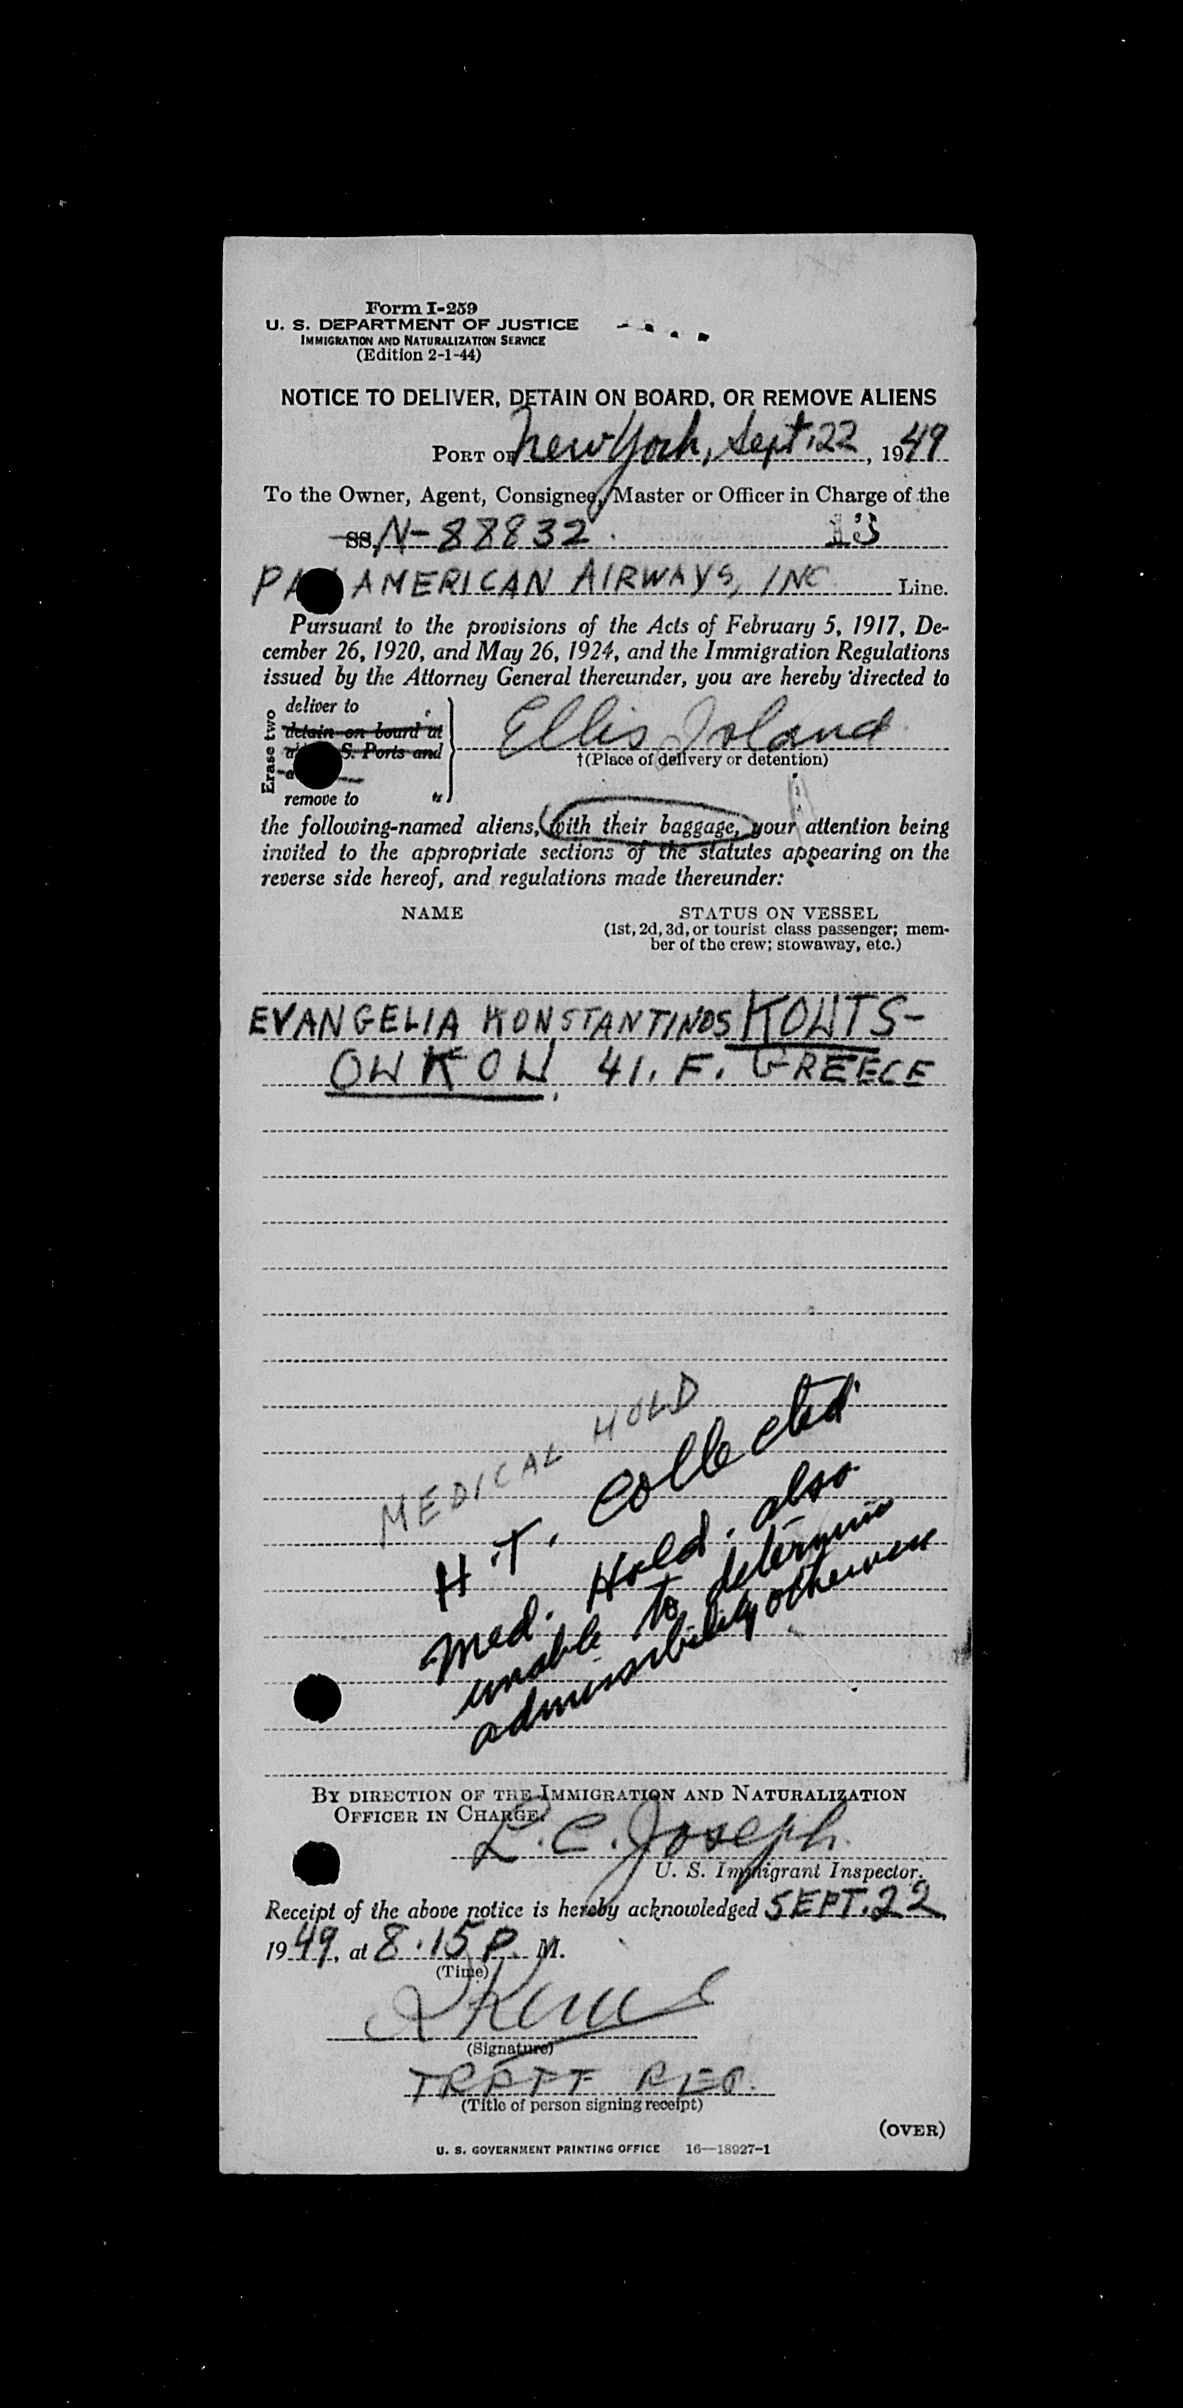 Form I-259
U. S. DEPARTMENT OF JUSTICE
IMMIGRATION AND NATURALIZATION SERVICE
(Edition 2-1-44)
NOTICE TO DELIVER, DETAIN ON BOARD, OR REMOVE ALIENS
PORT OF New York, Sept. 22, 1949
To the Owner, Agent, Consignee, Master or Officer in Charge of the
SS. N-88832. 13
PAN AMERICAN AIRWAYS, INC Line.
Pursuant to the provisions of the Acts of February 5, 1917, De-
cember 26, 1920, and May 26, 1924, and the Immigration Regulations
issued by the Attorney General thereunder, you are hereby directed to
Erase two
deliver to
detain on board at
S. Ports and
remove to
Ellis Island
†(Place of delivery or detention)
the following-named aliens, with their baggage, your attention being
invited to the appropriate sections of the statutes appearing on the
reverse side hereof, and regulations made thereunder:
NAME STATUS ON VESSEL
(1st, 2d, 3d, or tourist class passenger; mem-
ber of the crew; stowaway, etc.)
EVANGELIA KONSTANTINOS KOUTS-
OUKOU, 41. F. GREECE
MEDICAL HOLD
H.T. Collected
Med. Hold. also
unable to determine
admissibility otherwise
BY DIRECTION OF THE IMMIGRATION AND NATURALIZATION
OFFICER IN CHARGE.
L. C. Joseph
U. S. Immigrant Inspector.
Receipt of the above notice is hereby acknowledged SEPT. 22,
1949, at 8.15 P. M.
(Time)
(Signature)
REP.
(Title of person signing receipt)
(OVER)
U. S. GOVERNMENT PRINTING OFFICE 16—18927-1